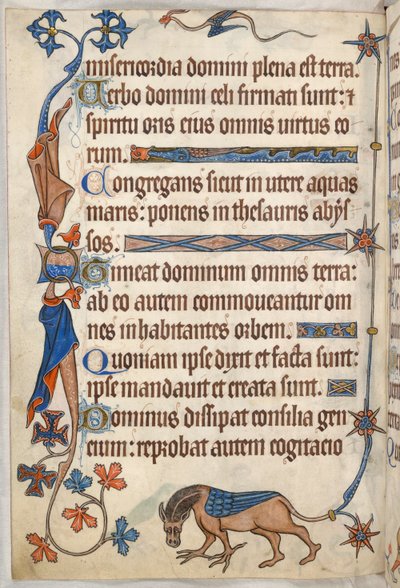 misericordia domini plena est terra.
Verbo domini celi firmati sunt: ⁊
spiritu oris eius omnis uirtus eo
rum.
Congregans sicut in utere aquas
maris: ponens in thesauris abys
sos.
Timeat dominum omnis terra:
ab eo autem commoueantur om
nes inhabitantes orbem.
Quoniam ipse dixit et facta sunt:
ipse mandauit et creata sunt.
Dominus dissipat consilia gen
cium: reprobat autem cogitacio